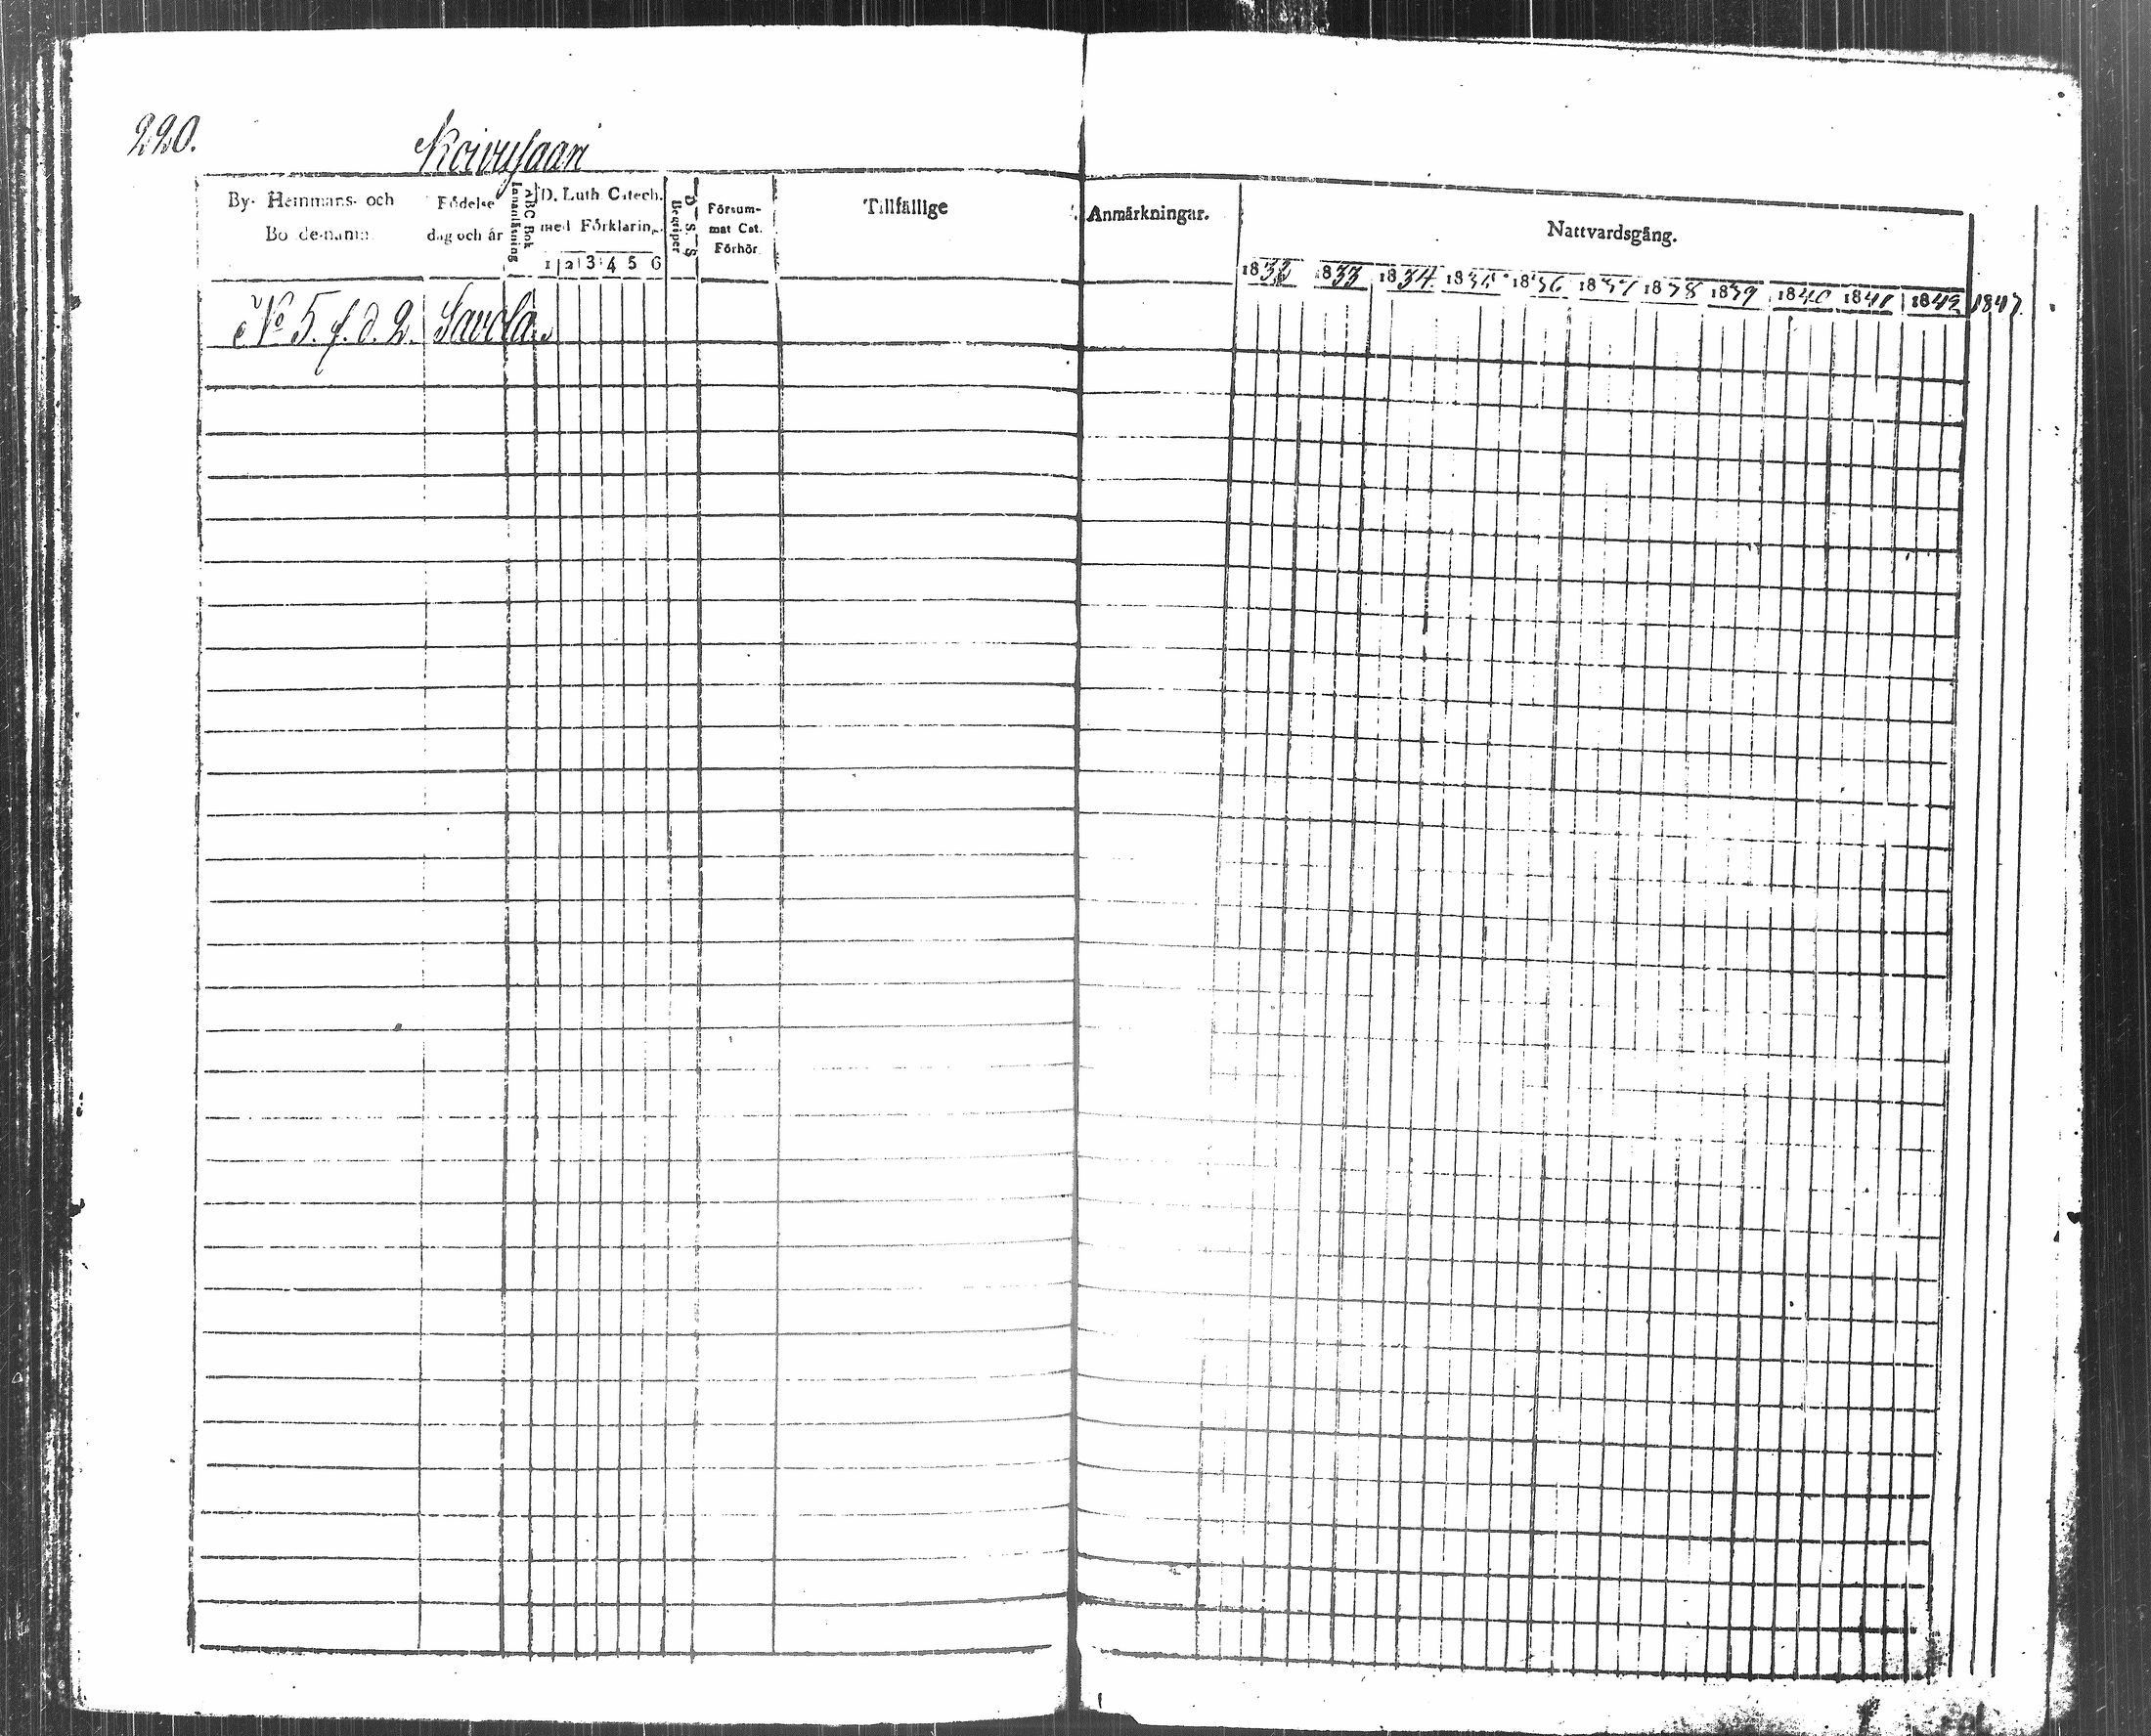 220.
Koivusaari
By- Hemmans- och
Bo de-namn
Födelse
dag och år
Innanläsning
ABC Bok
D. Luth Catech.
med Förklaring.
1 2 3 4 5 6
D. S. S
Begriper
Försum-
mat Cat.
Förhör
Tillfällige
Anmärkningar.
Nattvardsgång.
1832 1833 1834 1835 1836 1837 1838 1839 1840 1841 1842 1847
No 5. f. d. 2. Savola